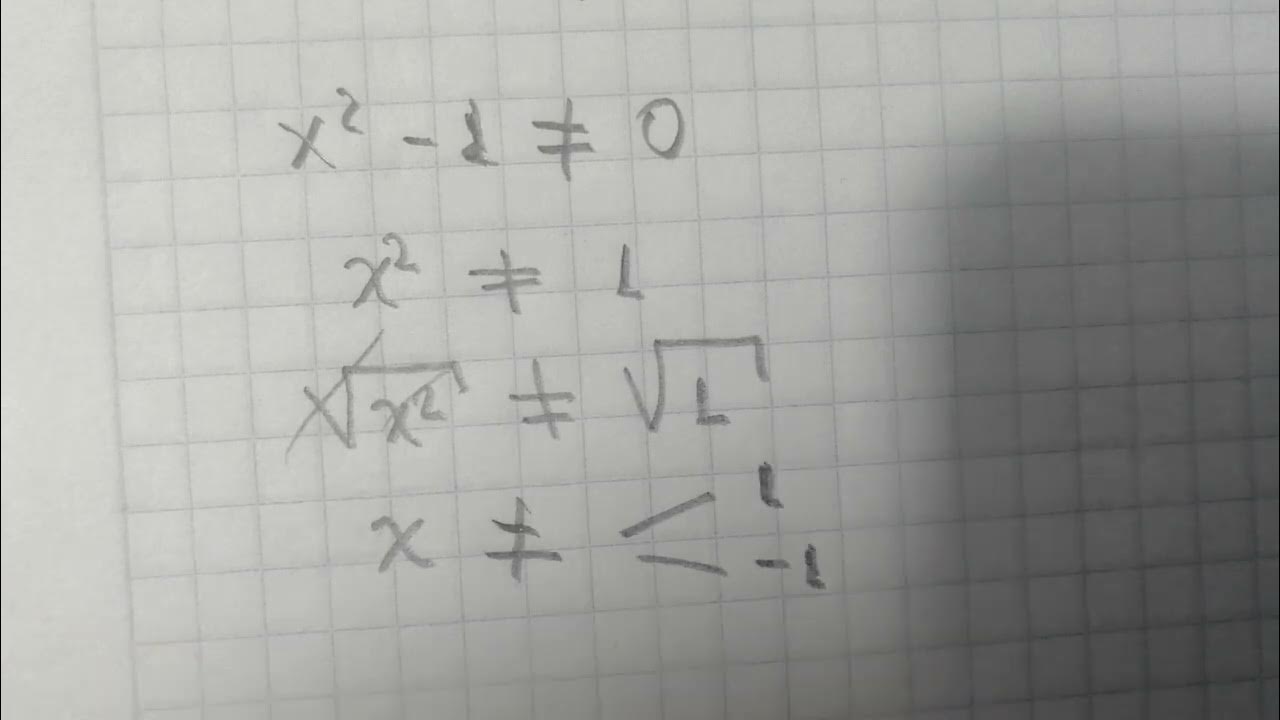 x² - 1 ≠ 0
x² ≠ 1
√x² ≠ √1
x ≠ < 1
-1